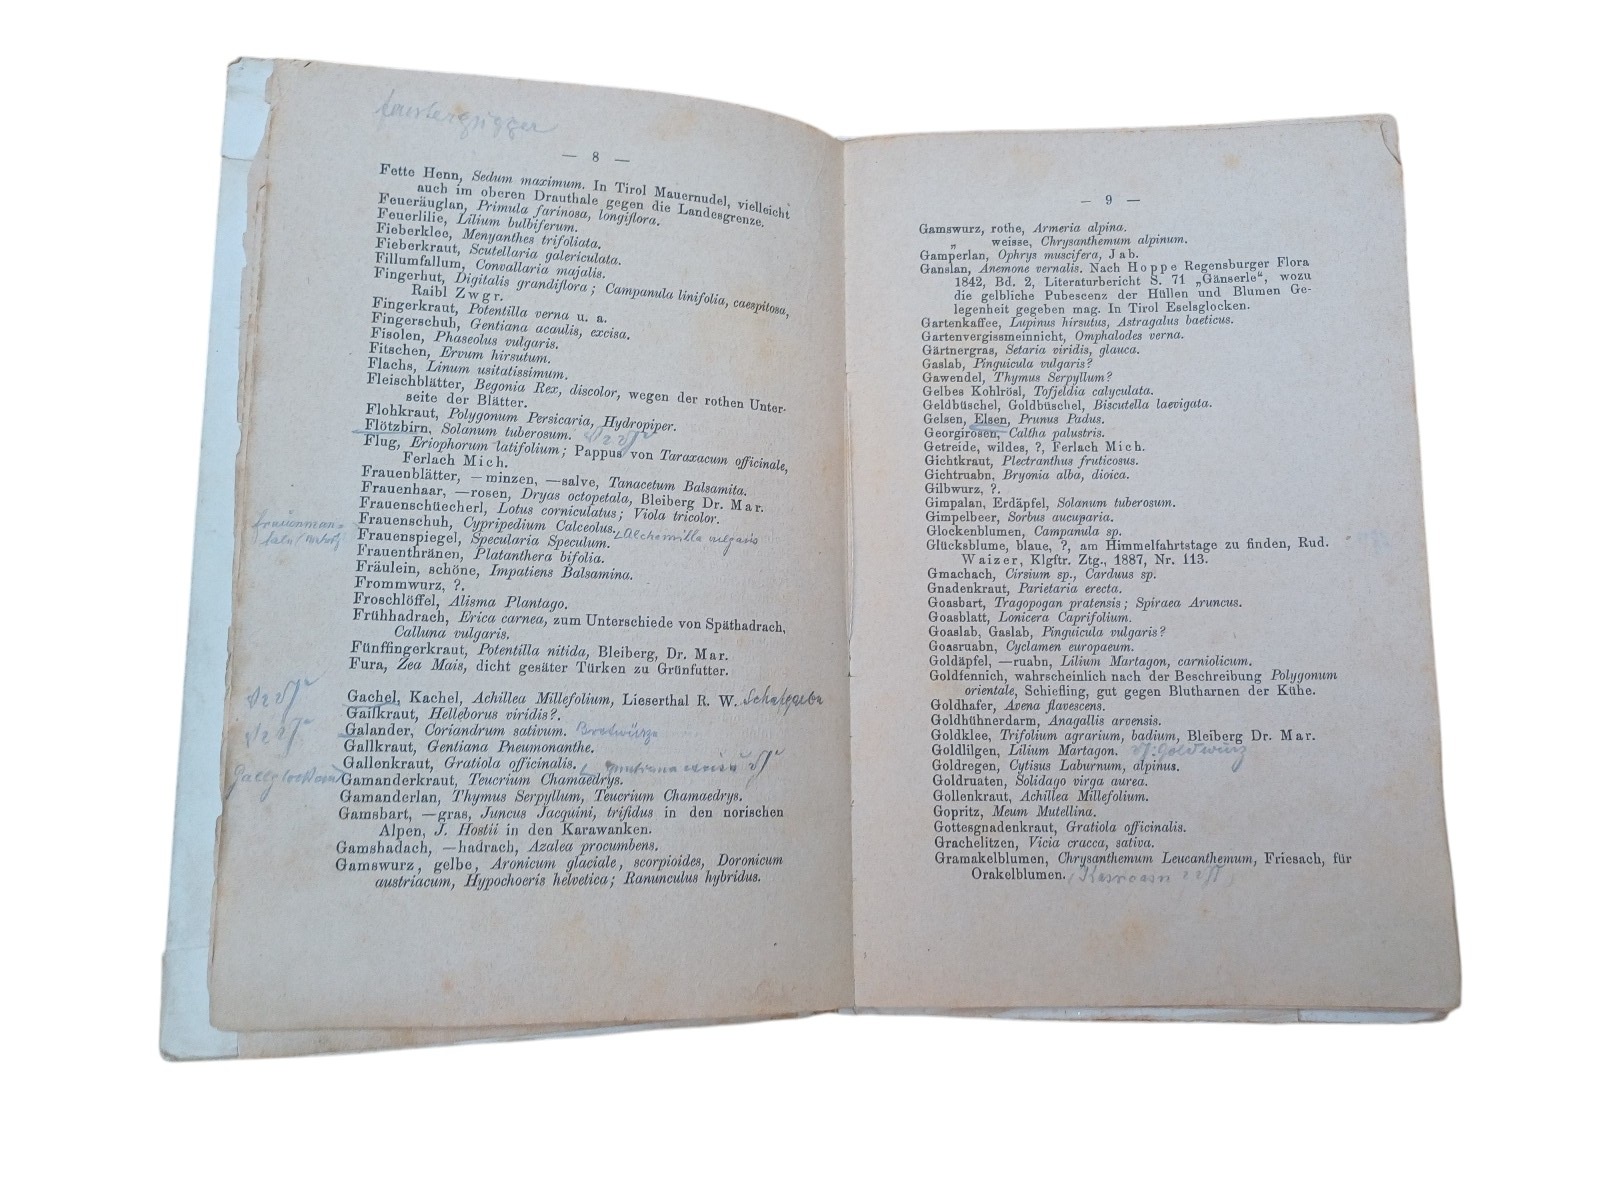 — 8 —
Fette Henn, Sedum maximum. In Tirol Mauernudel, vielleicht
auch im oberen Drauthale gegen die Landesgrenze.
Feueräuglan, Primula farinosa, longiflora.
Feuerlilie, Lilium bulbiferum.
Fieberklee, Menyanthes trifoliata.
Fieberkraut, Scutellaria galericulata.
Fillumfallum, Convallaria majalis.
Fingerhut, Digitalis grandiflora; Campanula linifolia, caespitosa,
Raibl Zwgr.
Fingerkraut, Potentilla verna u. a.
Fingerschuh, Gentiana acaulis, excisa.
Fisolen, Phaseolus vulgaris.
Fitschen, Ervum hirsutum.
Flachs, Linum usitatissimum.
Fleischblätter, Begonia Rex, discolor, wegen der rothen Unter-
seite der Blätter.
Flohkraut, Polygonum Persicaria, Hydropiper.
Flötzbirn, Solanum tuberosum.
Flug, Eriophorum latifolium; Pappus von Taraxacum officinale,
Ferlach Mich.
Frauenblätter, —minzen, —salve, Tanacetum Balsamita.
Frauenhaar, —rosen, Dryas octopetala, Bleiberg Dr. Mar.
Frauenschüecherl, Lotus corniculatus; Viola tricolor.
Frauenschuh, Cypripedium Calceolus.
Frauenspiegel, Specularia Speculum. Alchemilla vulgaris
Frauenthränen, Platanthera bifolia.
Fräulein, schöne, Impatiens Balsamina.
Frommwurz, ?.
Froschlöffel, Alisma Plantago.
Frühhadrach, Erica carnea, zum Unterschiede von Späthadrach,
Calluna vulgaris.
Fünffingerkraut, Potentilla nitida, Bleiberg, Dr. Mar.
Fura, Zea Mais, dicht gesäter Türken zu Grünfutter.
Gachel, Kachel, Achillea Millefolium, Lieserthal R. W. Schafgarbe
Gaißkraut, Helleborus viridis?.
Galander, Coriandrum sativum. Brotwürze
Gallkraut, Gentiana Pneumonanthe.
Gallenkraut, Gratiola officinalis.
Gamanderkraut, Teucrium Chamaedrys.
Gamanderlan, Thymus Serpyllum, Teucrium Chamaedrys.
Gamsbart, —gras, Juncus Jacquini, trifidus in den norischen
Alpen, J. Hostii in den Karawanken.
Gamshadach, —hadrach, Azalea procumbens.
Gamswurz, gelbe, Aronicum glaciale, scorpioides, Doronicum
austriacum, Hypochoeris helvetica; Ranunculus hybridus.
— 9 —
Gamswurz, rothe, Armeria alpina.
„ weisse, Chrysanthemum alpinum.
Gamperlan, Ophrys muscifera, Jab.
Ganslan, Anemone vernalis. Nach Hoppe Regensburger Flora
1842, Bd. 2, Literaturbericht S. 71 „Gänserle“, wozu
die gelbliche Pubescenz der Hüllen und Blumen Ge-
legenheit gegeben mag. In Tirol Eselsglocken.
Gartenkaffee, Lupinus hirsutus, Astragalus baeticus.
Gartenvergissmeinnicht, Omphalodes verna.
Gärtnergras, Setaria viridis, glauca.
Gaslab, Pinguicula vulgaris?
Gawendel, Thymus Serpyllum?
Gelbes Kohlrösl, Tofjeldia calyculata.
Geldbüschel, Goldbüschel, Biscutella laevigata.
Gelsen, Elsen, Prunus Padus.
Georgirosen, Caltha palustris.
Getreide, wildes, ?, Ferlach Mich.
Gichtkraut, Plectranthus fruticosus.
Gichtruabn, Bryonia alba, dioica.
Gilbwurz, ?.
Gimpalan, Erdäpfel, Solanum tuberosum.
Gimpelbeer, Sorbus aucuparia.
Glockenblumen, Campanula sp.
Glücksblume, blaue, ?, am Himmelfahrtstage zu finden, Rud.
Waizer, Klgftr. Ztg., 1887, Nr. 113.
Gmachach, Cirsium sp., Carduus sp.
Gnadenkraut, Parietaria erecta.
Goasbart, Tragopogan pratensis; Spiraea Aruncus.
Goasblatt, Lonicera Caprifolium.
Goaslab, Gaslab, Pinguicula vulgaris?
Goasruabn, Cyclamen europaeum.
Goldäpfel, —ruabn, Lilium Martagon, carniolicum.
Goldfennich, wahrscheinlich nach der Beschreibung Polygonum
orientale, Schiefling, gut gegen Blutharnen der Kühe.
Goldhafer, Avena flavescens.
Goldhühnerdarm, Anagallis arvensis.
Goldklee, Trifolium agrarium, badium, Bleiberg Dr. Mar.
Goldlilgen, Lilium Martagon. Goldwurz
Goldregen, Cytisus Laburnum, alpinus.
Goldruaten, Solidago virga aurea.
Gollenkraut, Achillea Millefolium.
Gopritz, Meum Mutellina.
Gottesgnadenkraut, Gratiola officinalis.
Grachelitzen, Vicia cracca, sativa.
Gramakelblumen, Chrysanthemum Leucanthemum, Friesach, für
Orakelblumen.